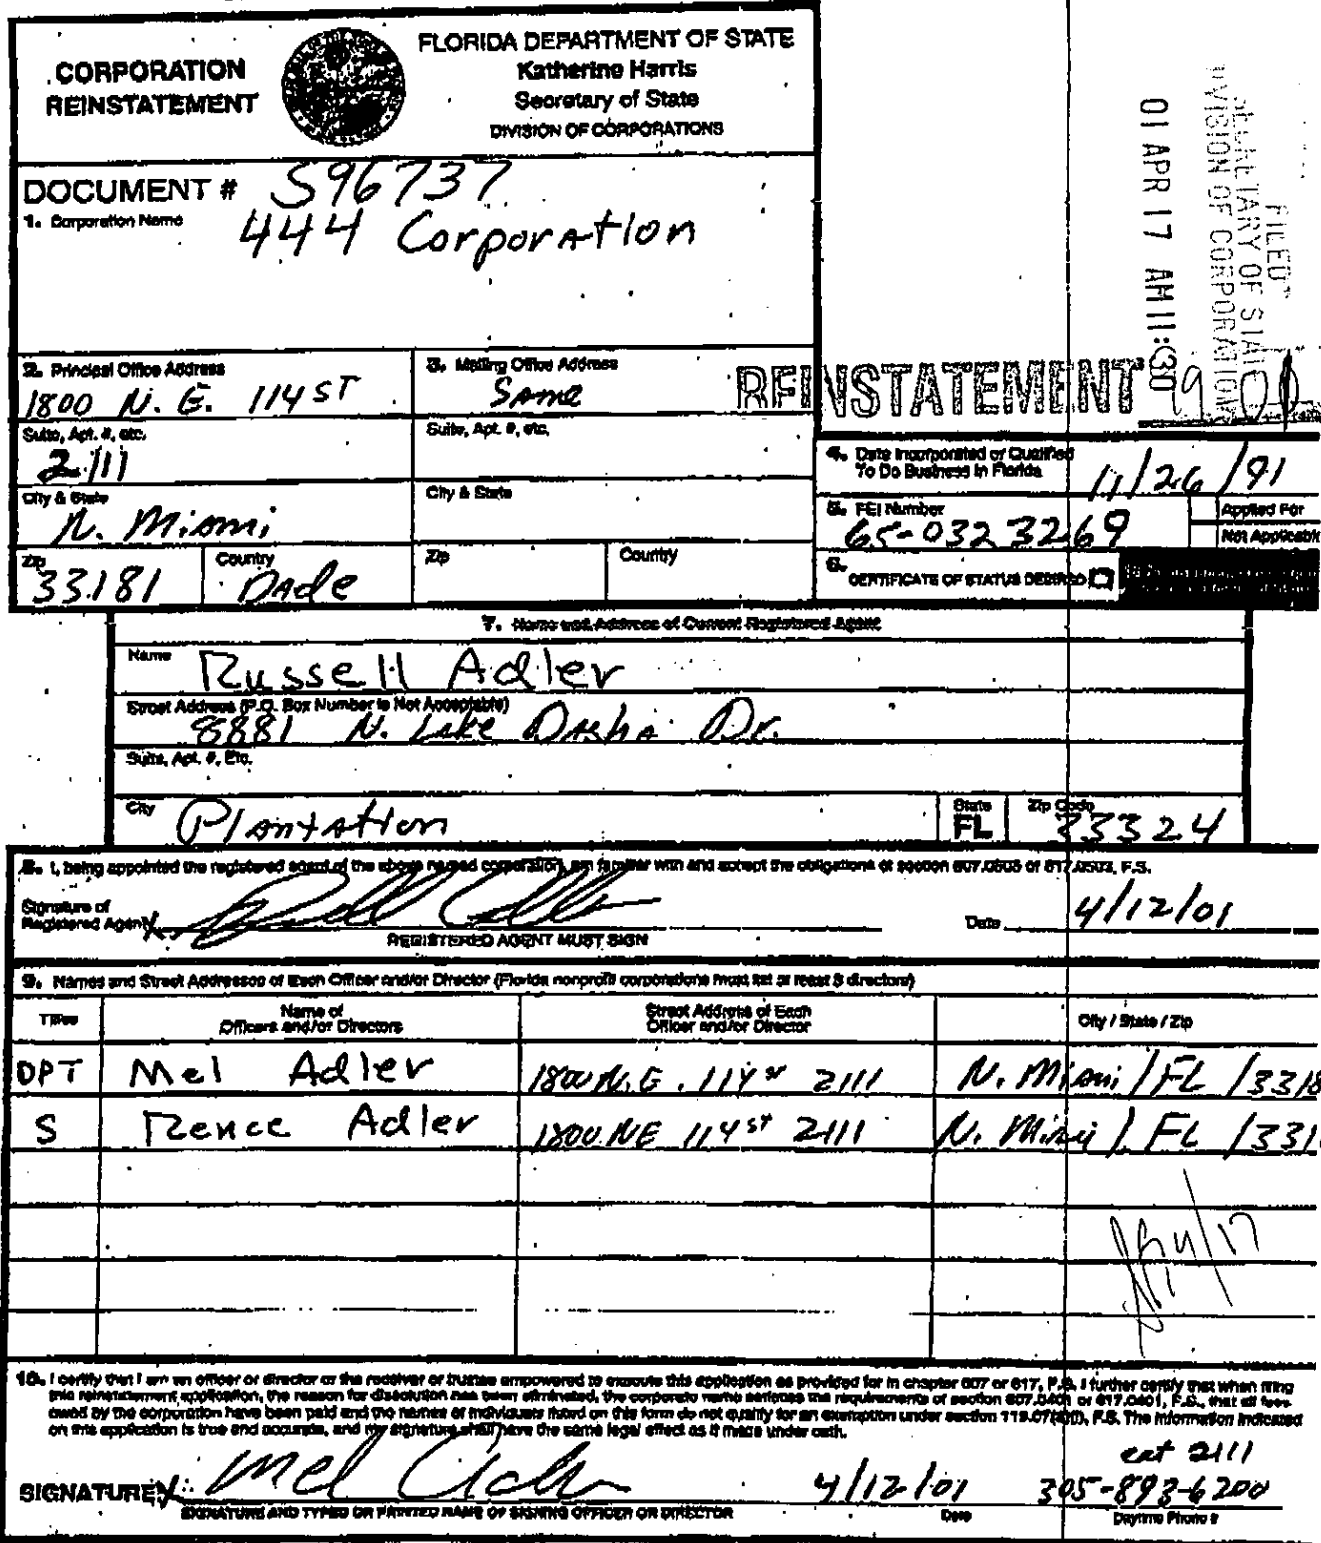 CORPORATION
REINSTATEMENT
FLORIDA DEPARTMENT OF STATE
Katherine Harris
Secretary of State
DIVISION OF CORPORATIONS
FILED
SECRETARY OF STATE
DIVISION OF CORPORATIONS
01 APR 17 AM 11:30
DOCUMENT # S96737
1. Corporation Name 444 Corporation
REINSTATEMENT
2. Principal Office Address
1800 N.E. 114 ST
3. Mailing Office Address
Same
Suite, Apt. #, etc.
2111
Suite, Apt. #, etc.
City & State
N. Miami
City & State
Zip
33181
Country
Dade
Zip
Country
4. Date Incorporated or Qualified
To Do Business in Florida
11/26/91
5. FEI Number
65-0323269
Applied For
Not Applicable
6. CERTIFICATE OF STATUS DESIRED
7. Name and Address of Current Registered Agent
Name Russell Adler
Street Address (P.O. Box Number is Not Acceptable)
8881 N. Lake Dasha Dr.
Suite, Apt. #, Etc.
City Plantation
State
FL
Zip Code
33324
8. I, being appointed the registered agent of the above named corporation, am familiar with and accept the obligations of section 607.0505 or 617.0503, F.S.
Signature of
Registered Agent X
Date 4/12/01
REGISTERED AGENT MUST SIGN
9. Names and Street Addresses of Each Officer and/or Director (Florida nonprofit corporations must list at least 3 directors)
Titles
Name of
Officers and/or Directors
Street Address of Each
Officer and/or Director
City / State / Zip
DPT Mel Adler 1800 N.E. 114 st 2111 N. Miami / FL / 3318
S Renee Adler 1800 NE 114 st 2111 N. Miami / FL / 331
4/17
10. I certify that I am an officer or director or the receiver or trustee empowered to execute this application as provided for in chapter 607 or 617, F.S. I further certify that when filing
this reinstatement application, the reason for dissolution has been eliminated, the corporate name satisfies the requirements of section 607.0401 or 617.0401, F.S., that all fees
owed by the corporation have been paid and the names of individuals listed on this form do not qualify for an exemption under section 119.07(3)(i), F.S. The information indicated
on this application is true and accurate, and my signature shall have the same legal effect as if made under oath.
ext 2111
SIGNATURE X Mel Adler 4/12/01 305-893-6200
SIGNATURE AND TYPED OR PRINTED NAME OF SIGNING OFFICER OR DIRECTOR
Date
Daytime Phone #